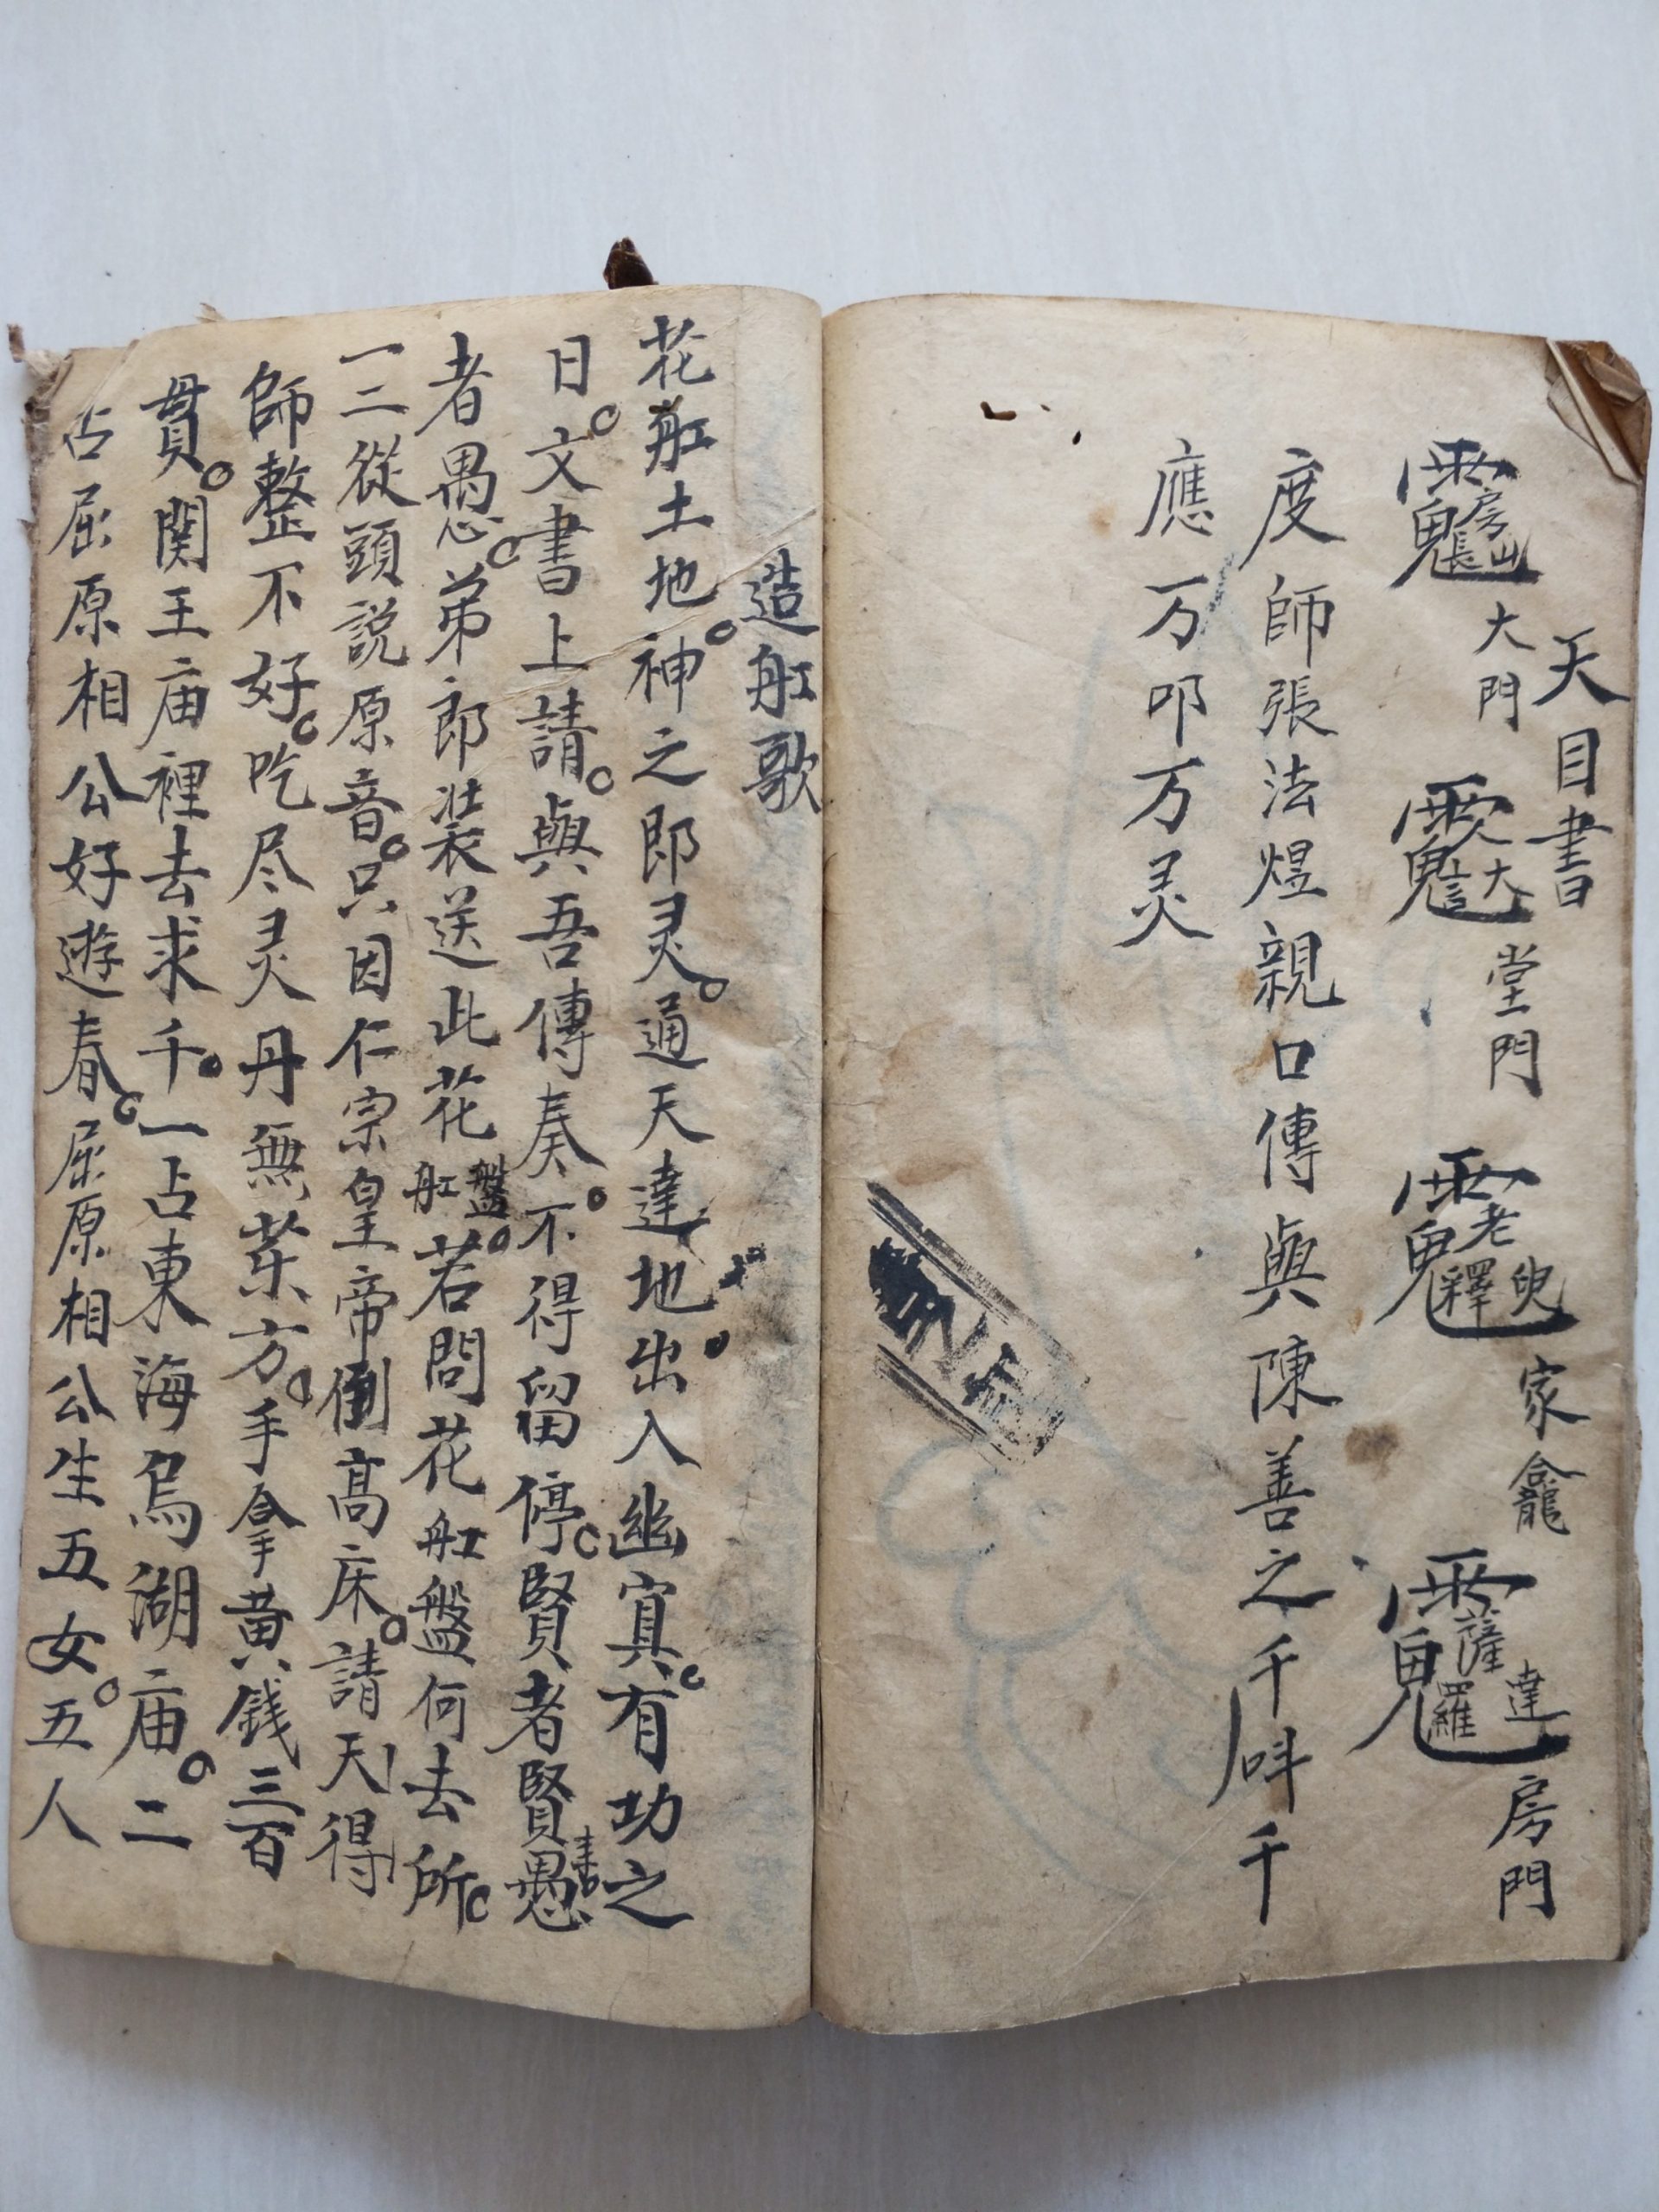 天目書
大門 堂門 家龕 房門
度師張法煜親口傳與陳善之千叫千
應万叩万灵
造舡歌
花舡土地神之郎灵通天達地出入幽寘有功之
日文書上請與吾傳奏不得留停賢者賢愚書
者愚弟郎装送此花舡盤若問花舡盤何去所
一二從頭説原音只因仁宗皇帝倒高床請天得
師整不好吃尽灵丹無茱方手拿黄钱三百
貫関王庙裡去求千一占東海烏湖庙二
占屈原相公好遊春屈原相公生五女五人